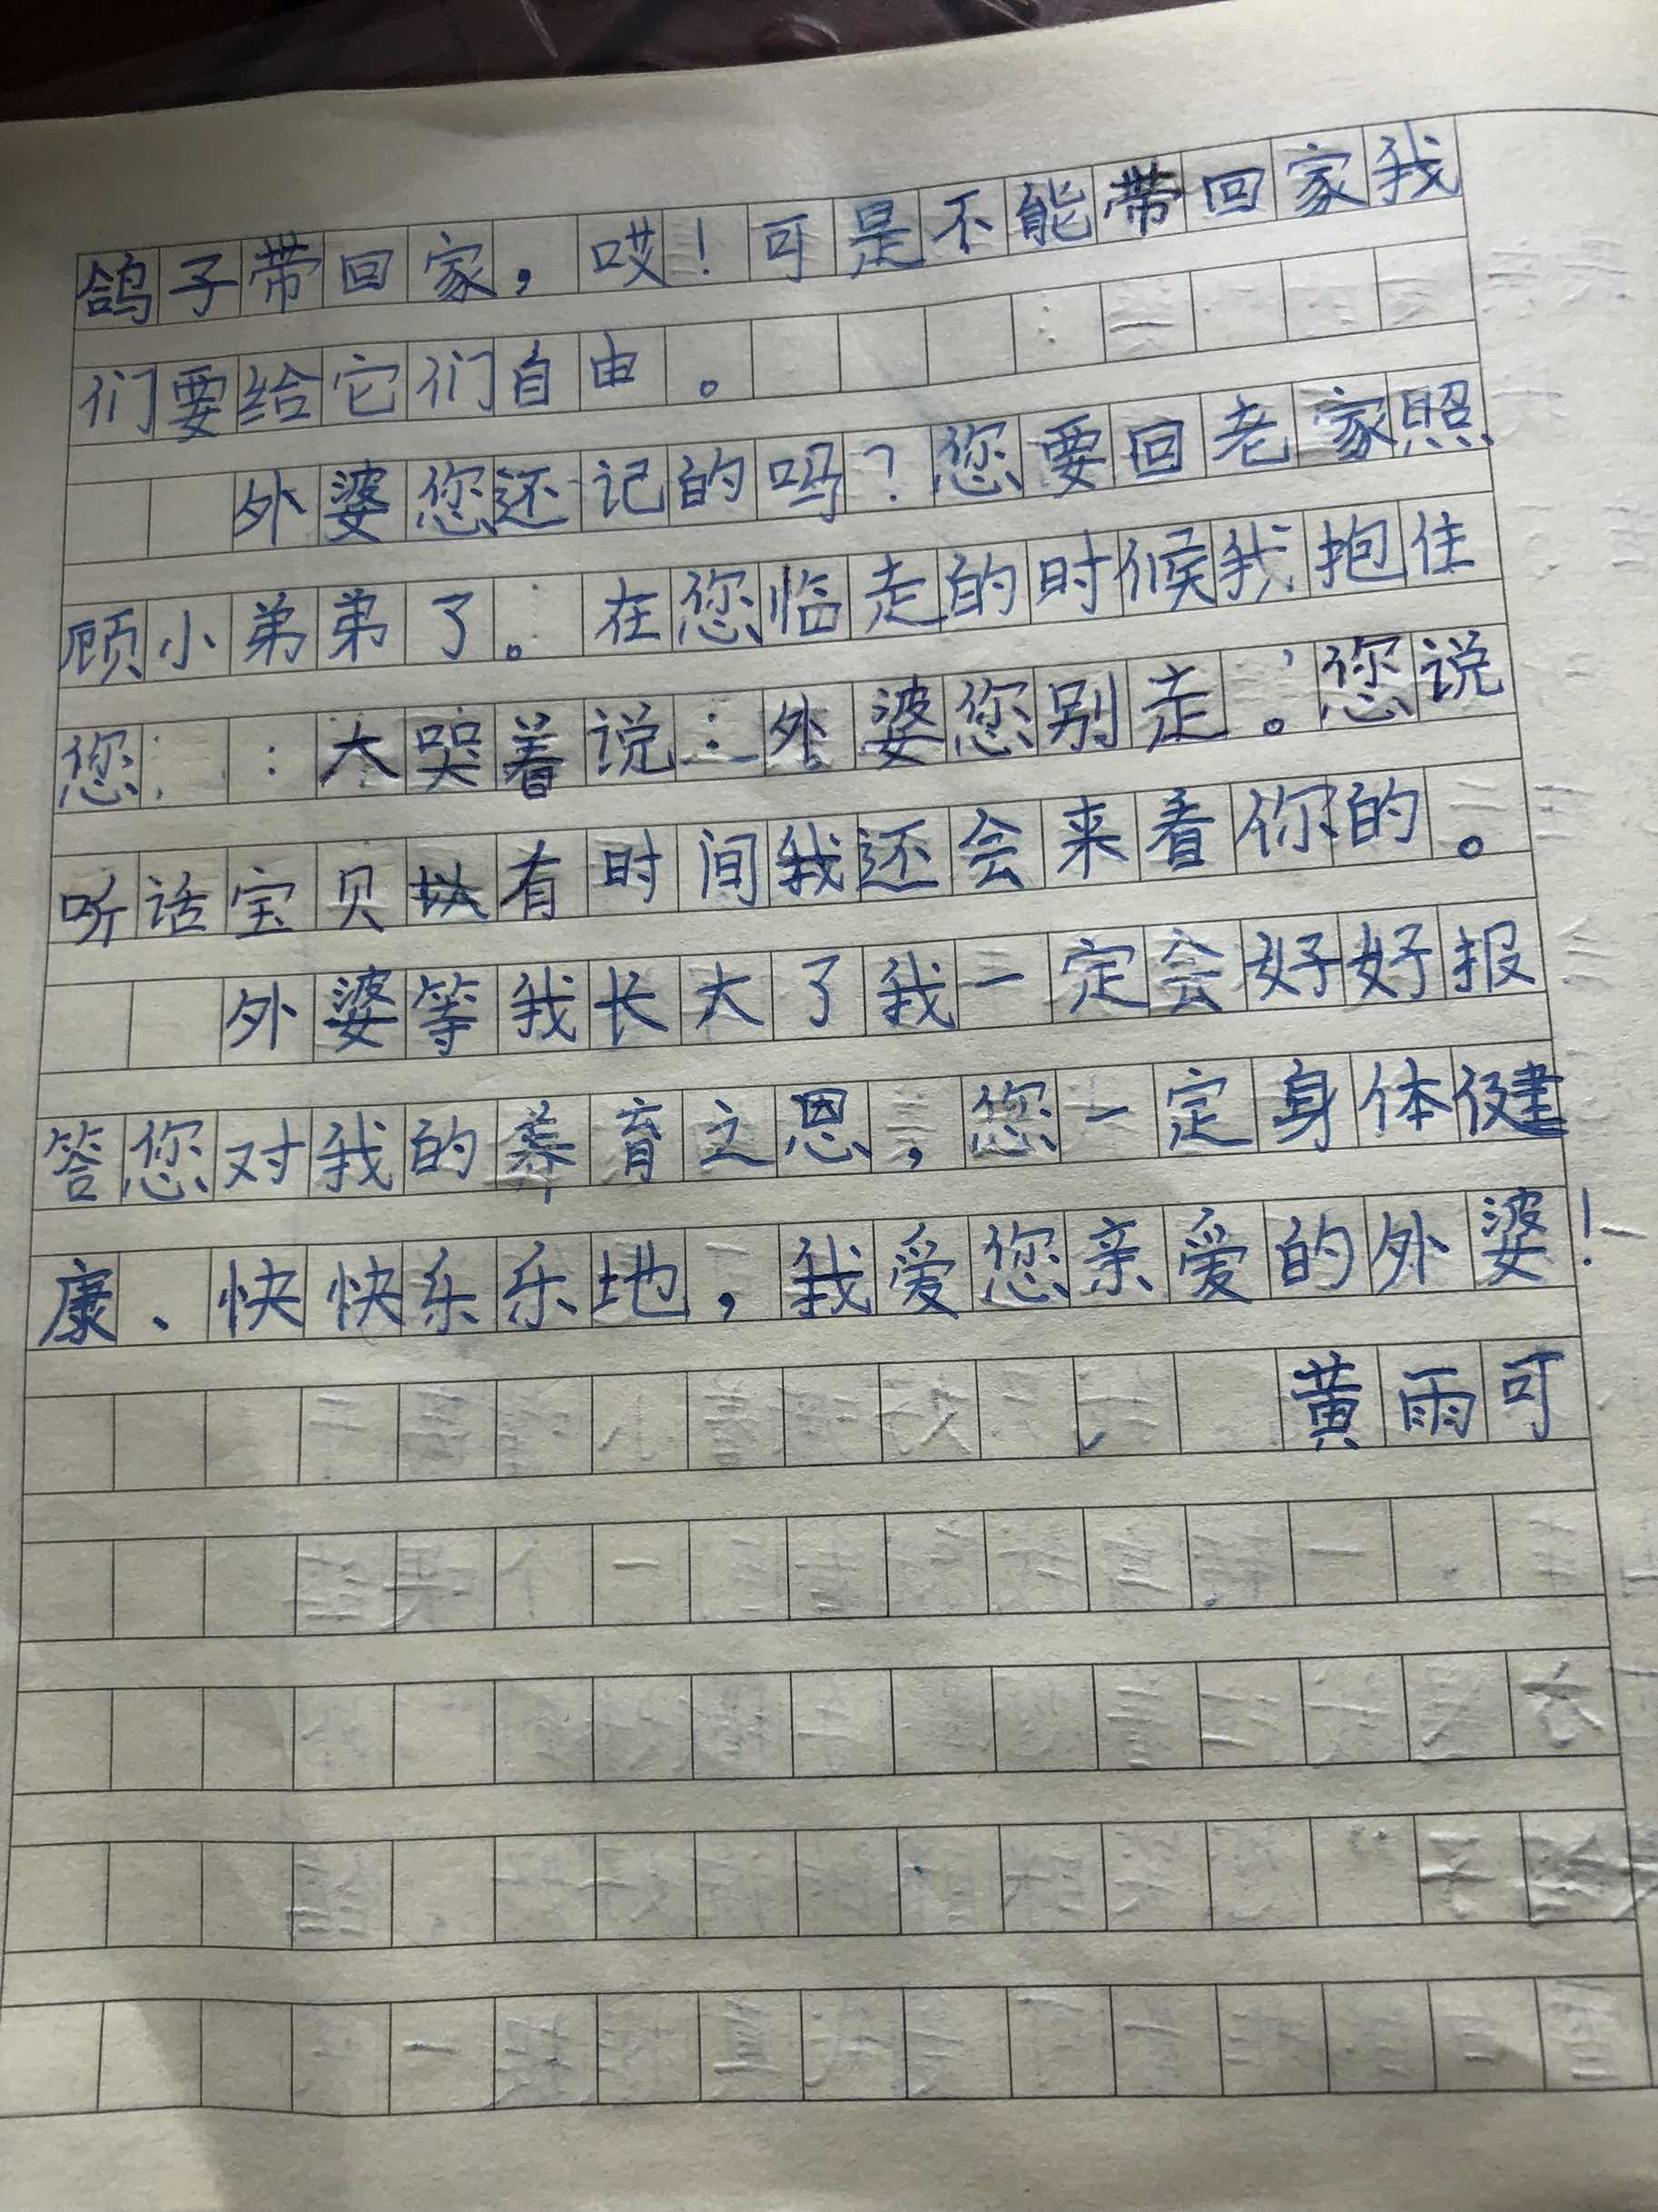 鸽子带回家，哎！可是不能带回家我
们要给它们自由。
外婆您还记的吗？您要回老家照
顾小弟弟了。在您临走的时候我抱住
您大哭着说：外婆您别走。您说
听话宝贝有时间我还会来看你的。
外婆等我长大了我一定会好好报
答您对我的养育之恩，您一定身体健
康、快快乐乐地，我爱您亲爱的外婆！
黄雨可